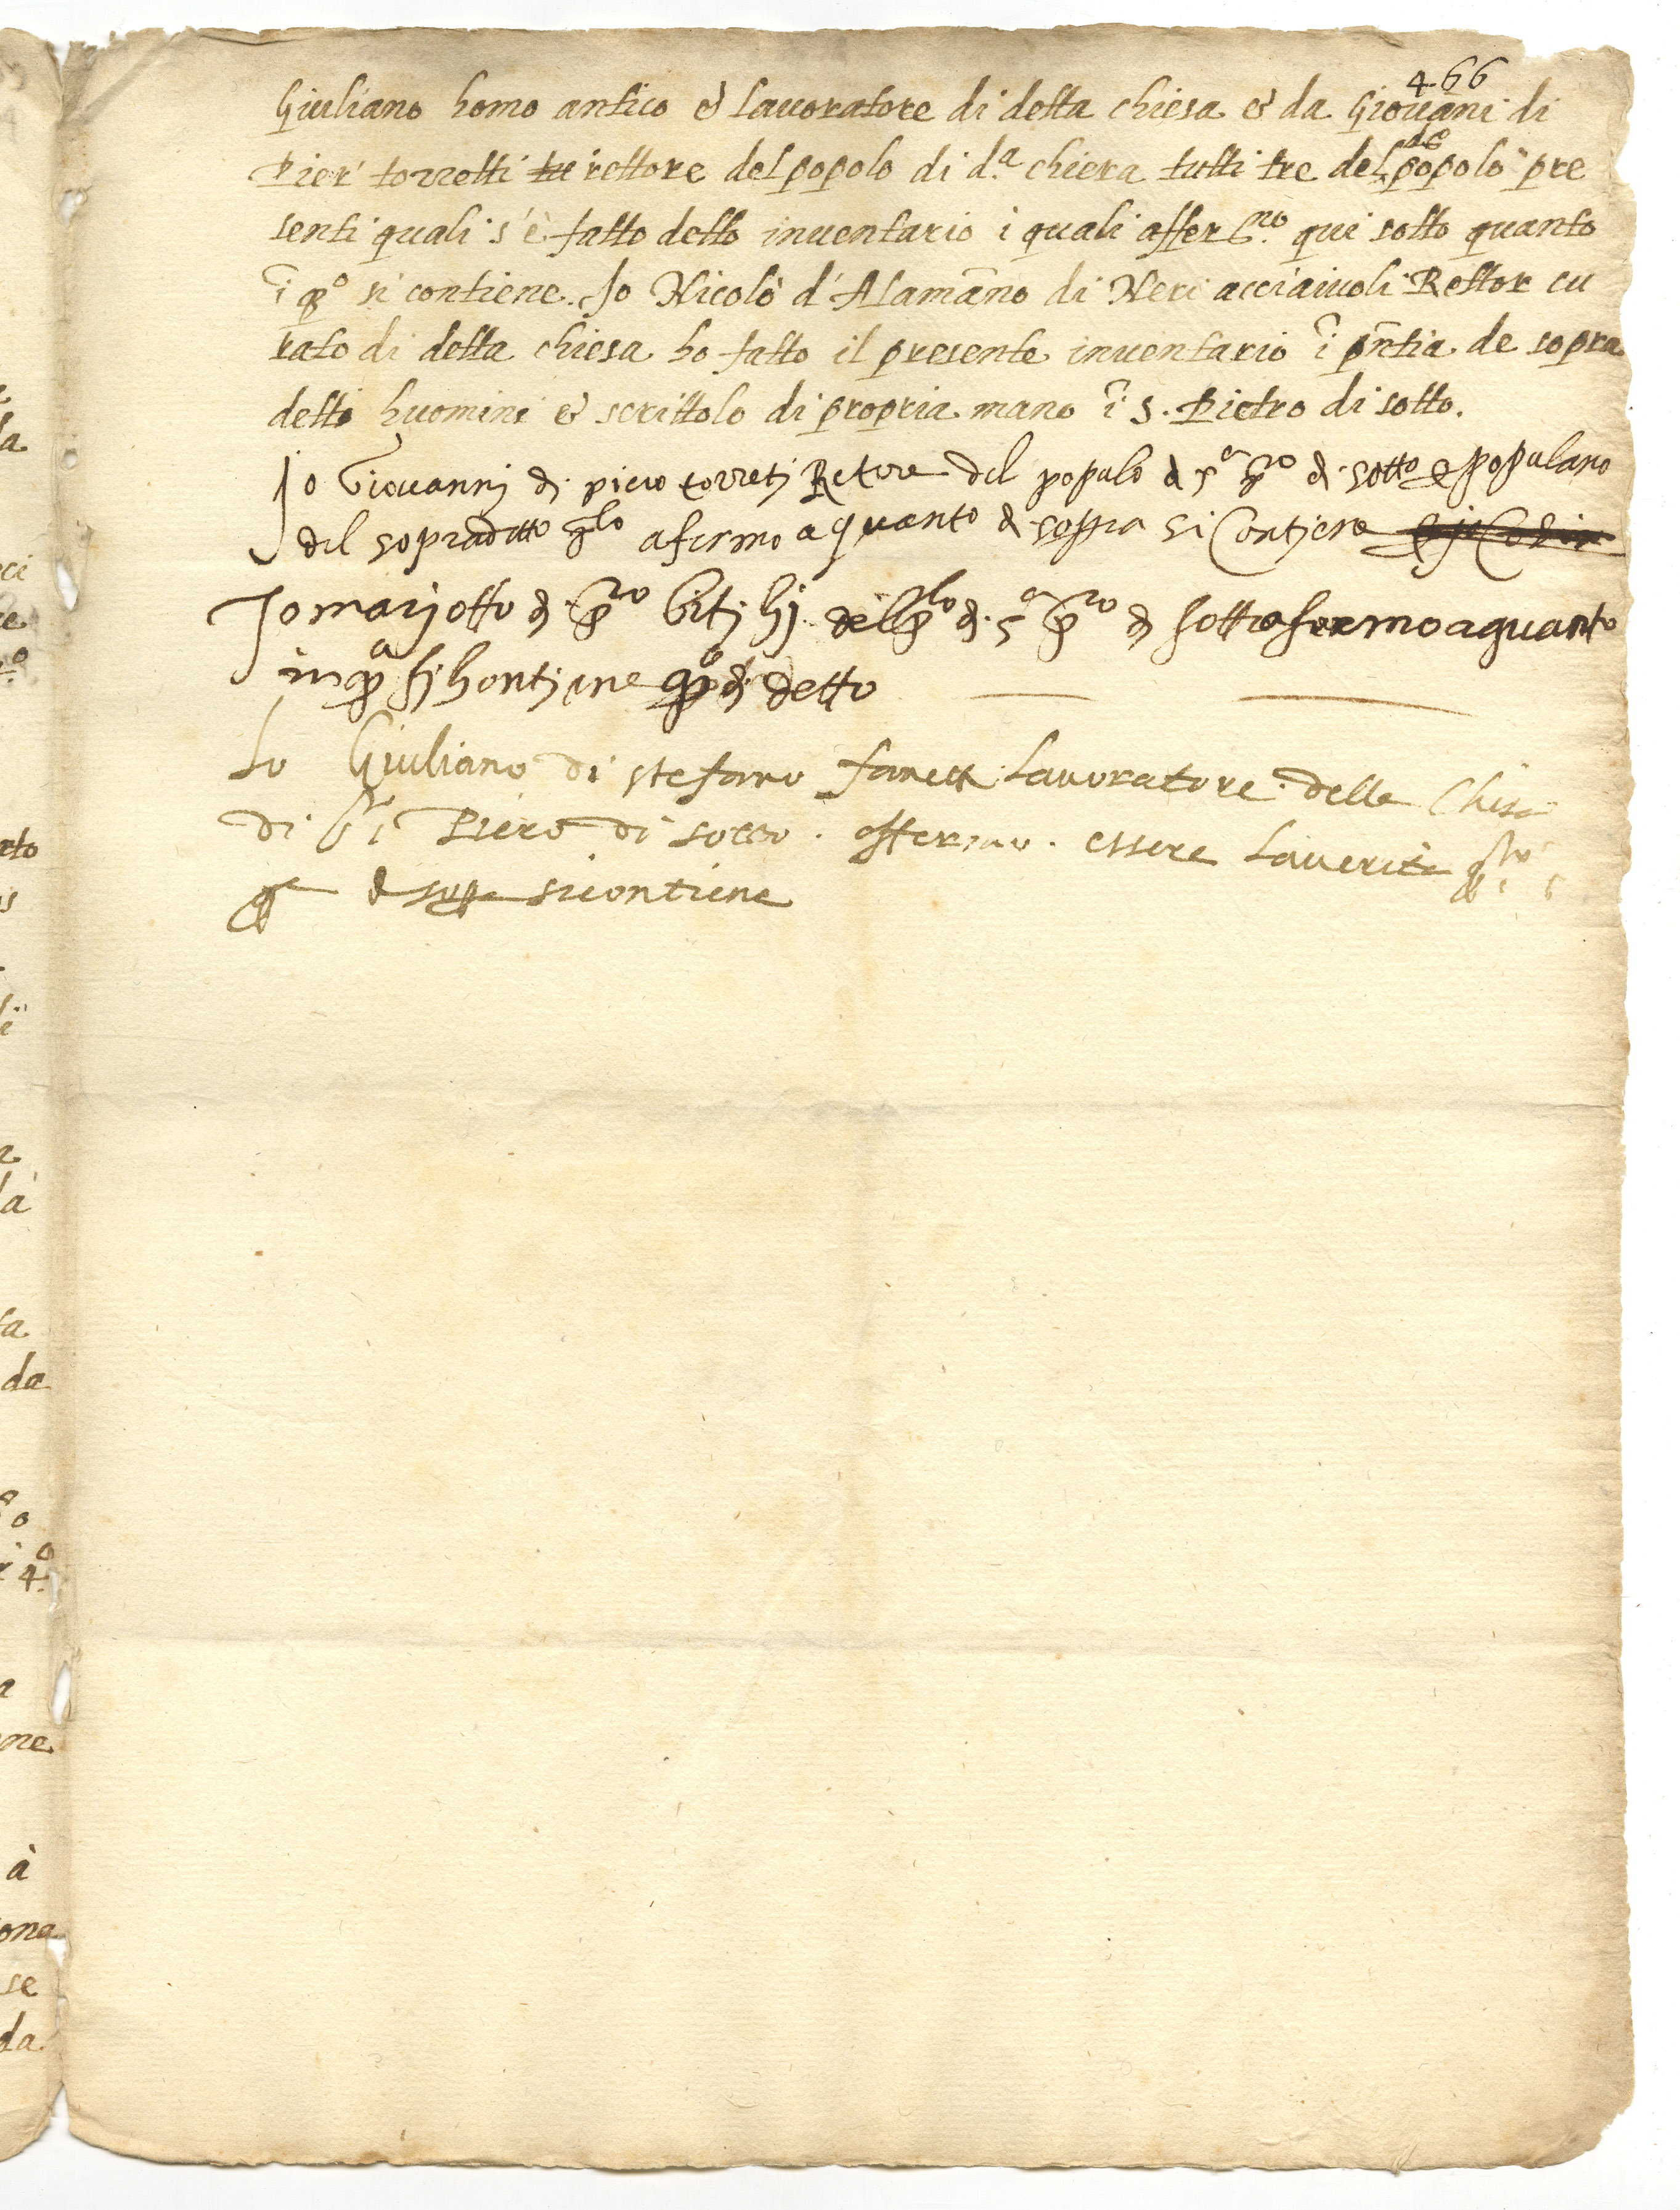 466
Giuliano homo antico et lavoratore di detta chiesa et da Giovani di
Pier' torretti tu rettore del popolo di d.ª chiesa tutti tre del popolo dº pre
senti quali s'è fatto detto inventario i quali affer.no qui sotto quanto
ī qº si contiene. Io Nicolò d'Alamāno di Neri acciaiuoli Rettor cu
rato di detta chiesa ho fatto il presente inventario ī pñtia de sopra
detti huomini et scrittolo di propria mano ī S. Pietro di sotto.
Io Giovannj dj piero torretj Retore del popolo d sº pro di sotto e popolano
del sopradetto plo afermo a quanto di sopra si Contjene
Io marjotto dj pro del plo dj sº pro dj sotto afermo a quanto
in qª sj hontjene detto
Io Giuliano di stefano lavoratore della Chiesa
di Sto Piero di sotto. affermo. essere la verità qto
di sopra si contiene